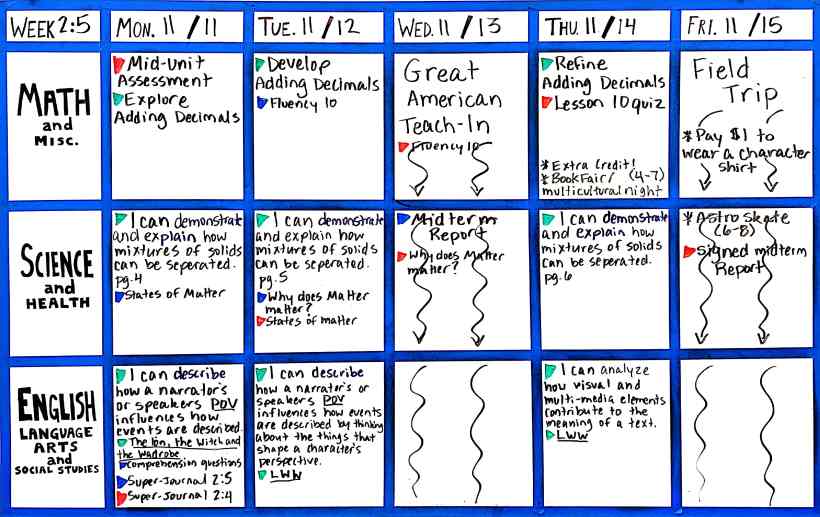 WEEK 2:5
MON. 11/11
TUE. 11/12
WED. 11/13
THU. 11/14
FRI. 11/15
MATH
and
MISC.
Mid-Unit
Assessment
Explore
Adding Decimals
Develop
Adding Decimals
Fluency 10
Great
American
Teach-In
Fluency 10
Refine
Adding Decimals
Lesson 10 quiz
*Extra Credit!
*Book Fair/ (4-7)
multicultural night
Field
Trip
*Pay $1 to
wear a character
shirt
SCIENCE
and
HEALTH
I can demonstrate
and explain how
mixtures of solids
can be seperated.
pg. 4
States of Matter
I can demonstrate
and explain how
mixtures of solids
can be seperated.
pg. 5
Why does Matter
matter?
States of matter
Midterm
Report
Why does Matter
matter?
I can demonstrate
and explain how
mixtures of solids
can be seperated.
pg. 6
*Astro Skate
(6-8)
Signed midterm
Report
ENGLISH
LANGUAGE
ARTS
and
SOCIAL STUDIES
I can describe
how a narrator's
or speakers POV
influences how
events are described.
The lion, the Witch and
the Wadrobe
Comprehension questions
Super-Journal 2:5
Super-Journal 2:4
I can describe
how a narrator's or
speakers POV
influences how events
are described by thinking
about the things that
shape a character's
perspective.
LWW
I can analyze
how visual and
multi-media elements
contribute to the
meaning of a text.
LWW